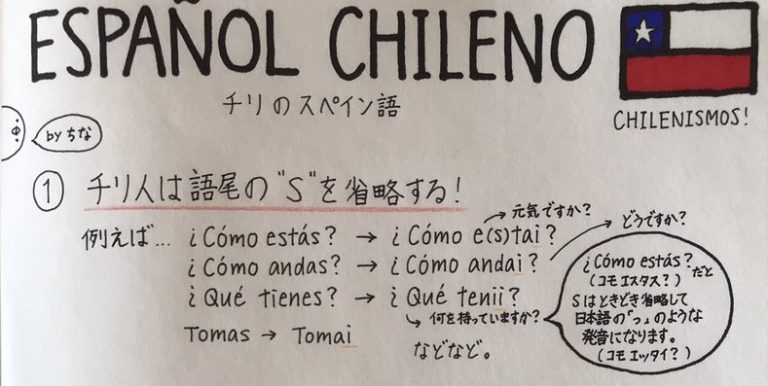 ESPAÑOL CHILENO
チリのスペイン語
CHILENISMOS!
by ちな
① チリ人は語尾の"S"を省略する!
例えば... ¿Cómo estás? → ¿Cómo e(s)tai?
→ 元気ですか?
¿Cómo andas? → ¿Cómo andai?
→ どうですか?
¿Qué tienes? → ¿Qué tenii?
→ 何を持っていますか?
Tomas → Tomai
などなど。
¿Cómo estás?だと
(コモ エスタス?)
Sはときどき省略して
日本語の「っ」のような
発音になります。
(コモ エッタイ?)